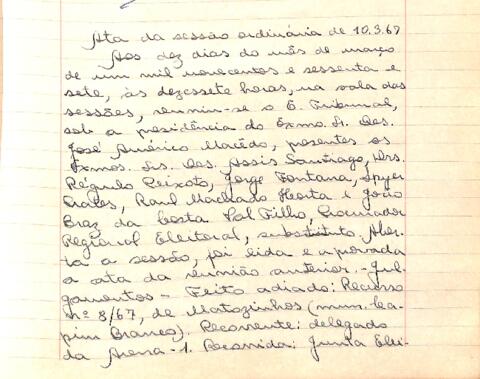 Ata da sessão ordinária de 10.3.67
Aos dez dias do mês de março
de um mil novecentos e sessenta e
sete, às dezessete horas, na sala das
sessões, reuniu-se o E. Tribunal,
sob a presidência do Exmo. Sr. Des.
José Américo Macêdo, presentes os
Exmos. Srs. Des. Assis Santiago, Drs.
Régulo Peixoto, Jorge Fontana, Spyer
Prates, Raul Machado Horta e João
Braz da Costa Val Filho, Procurador
Regional Eleitoral, substituto. Aber-
ta a sessão, foi lida e aprovada
a ata da reunião anterior. - Jul-
gamentos - Feito adiado: Recurso
nº 8/67, de Matozinhos (mun. Ca-
pim Branco). Recorrente: delegado
da Arena - 1. Recorrida: Junta Elei-